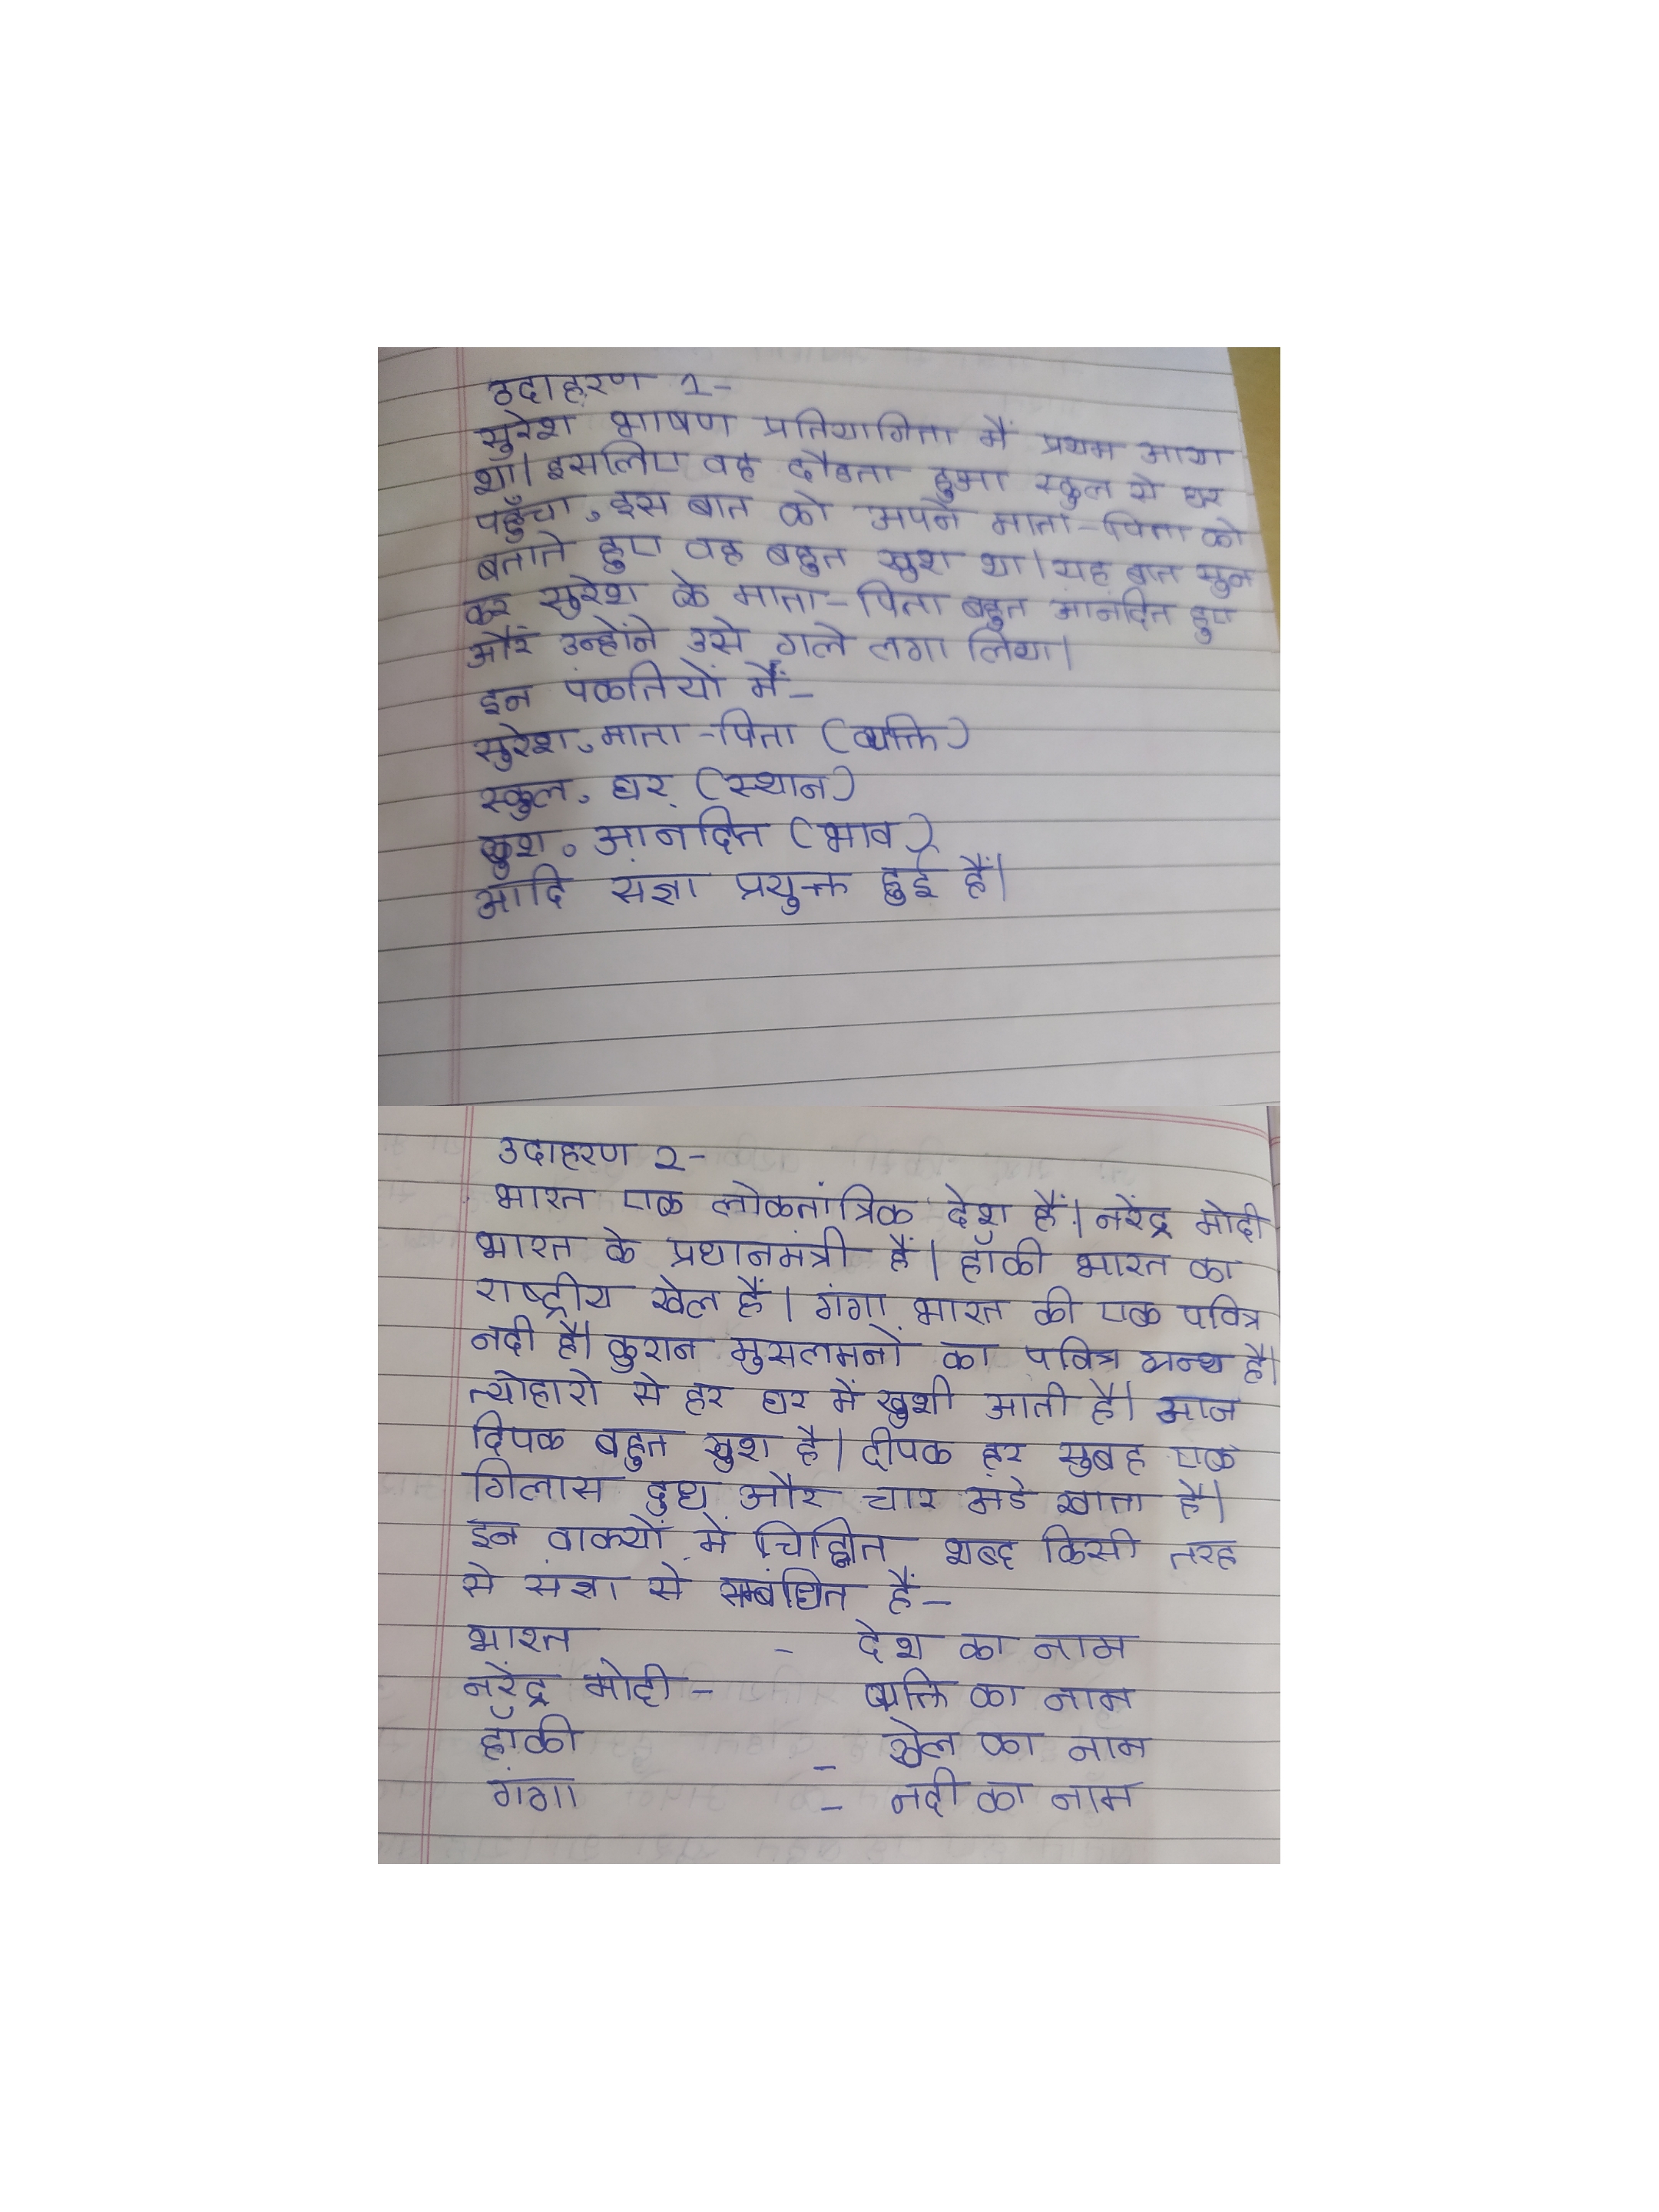 उदाहरण 1-
सुरेश भाषण प्रतियागिता में प्रथम आया
था। इसलिए वह दौडता हुआ स्कुल से घर
पहुँचा, इस बात को अपने माता-पिता को
बताते हुए वह बहुत खुश था। यह बात सुन
कर सुरेश के माता-पिता बहुत आनंदित हुए
और उन्होंने उसे गले लगा लिया।
इन पंकतियों में-
सुरेश, माता-पिता (व्यक्ति)
स्कुल, घर (स्थान)
खुश, आनंदित (भाव)
आदि संज्ञा प्रयुक्त हुई हैं।
उदाहरण 2-
भारत एक लोकतांत्रिक देश हैं। नरेंद्र मोदी
भारत के प्रधानमंत्री हैं। हॉकी भारत का
राष्ट्रीय खेल हैं। गंगा भारत की एक पवित्र
नदी है। कुरान मुसलमनों का पवित्र ग्रन्थ है।
त्योहारो से हर घर में खुशी आती है। आज
दिपक बहुत खुश है। दीपक हर सुबह एक
गिलास दुध और चार अंडे खाता है।
इन वाक्यों में चिह्नित शब्द किसी तरह
से संज्ञा से सम्बंधित हैं-
भारत - देश का नाम
नरेंद्र मोदी - व्यक्ति का नाम
हॉकी - खेल का नाम
गंगा - नदी का नाम